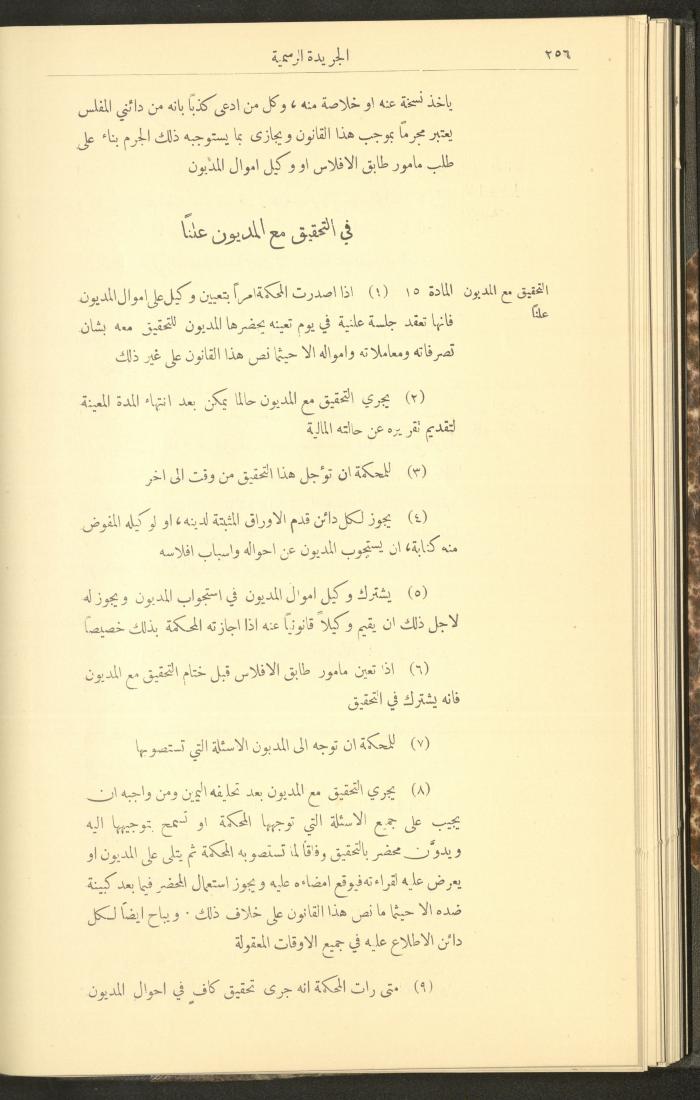 ٢٥٦
الجريدة الرسمية
ياخذ نسخة عنه او خلاصة منه ، وكل من ادعى كذبًا بانه من دائني المفلس
يعتبر مجرمًا بموجب هذا القانون ويجازى بما يستوجبه ذلك الجرم بناء على
طلب مامور طابق الافلاس او وكيل اموال المديون
في التحقيق مع المديون علنًا
التحقيق مع المديون
علنًا
المادة ١٥ (١) اذا اصدرت المحكمة امراً بتعيين وكيل على اموال المديون
فانها تعقد جلسة علنية في يوم تعينه يحضرها المديون للتحقيق معه بشان
تصرفاته ومعاملاته وامواله الا حيثما نص هذا القانون على غير ذلك
(٢) يجري التحقيق مع المديون حالما يمكن بعد انتهاء المدة المعينة
لتقديم تقريره عن حالته المالية
(٣) للمحكمة ان تؤجل هذا التحقيق من وقت الى اخر
(٤) يجوز لكل دائن قدم الاوراق المثبتة لدينه ، او لوكيله المفوض
منه كتابة ، ان يستجوب المديون عن احواله واسباب افلاسه
(٥) يشترك وكيل اموال المديون في استجواب المديون ويجوز له
لاجل ذلك ان يقيم وكيلاً قانونيًا عنه اذا اجازته المحكمة بذلك خصيصًا
(٦) اذا تعين مامور طابق الافلاس قبل ختام التحقيق مع المديون
فانه يشترك في التحقيق
(٧) للمحكمة ان توجه الى المديون الاسئلة التي تستصوبها
(٨) يجري التحقيق مع المديون بعد تحليفه اليمين ومن واجبه ان
يجيب على جميع الاسئلة التي توجهها المحكمة او تسمح بتوجيهها اليه
ويدوَّن محضر بالتحقيق وفاقا لما تستصوبه المحكمة ثم يتلى على المديون او
يعرض عليه لقراءته فيوقع امضاءه عليه ويجوز استعمال المحضر فيما بعد كبينة
ضده الا حيثما ما نص هذا القانون على خلاف ذلك . ويباح ايضًا لكل
دائن الاطلاع عليه في جميع الاوقات المعقولة
(٩) متى رات المحكمة انه جرى تحقيق كافٍ في احوال المديون